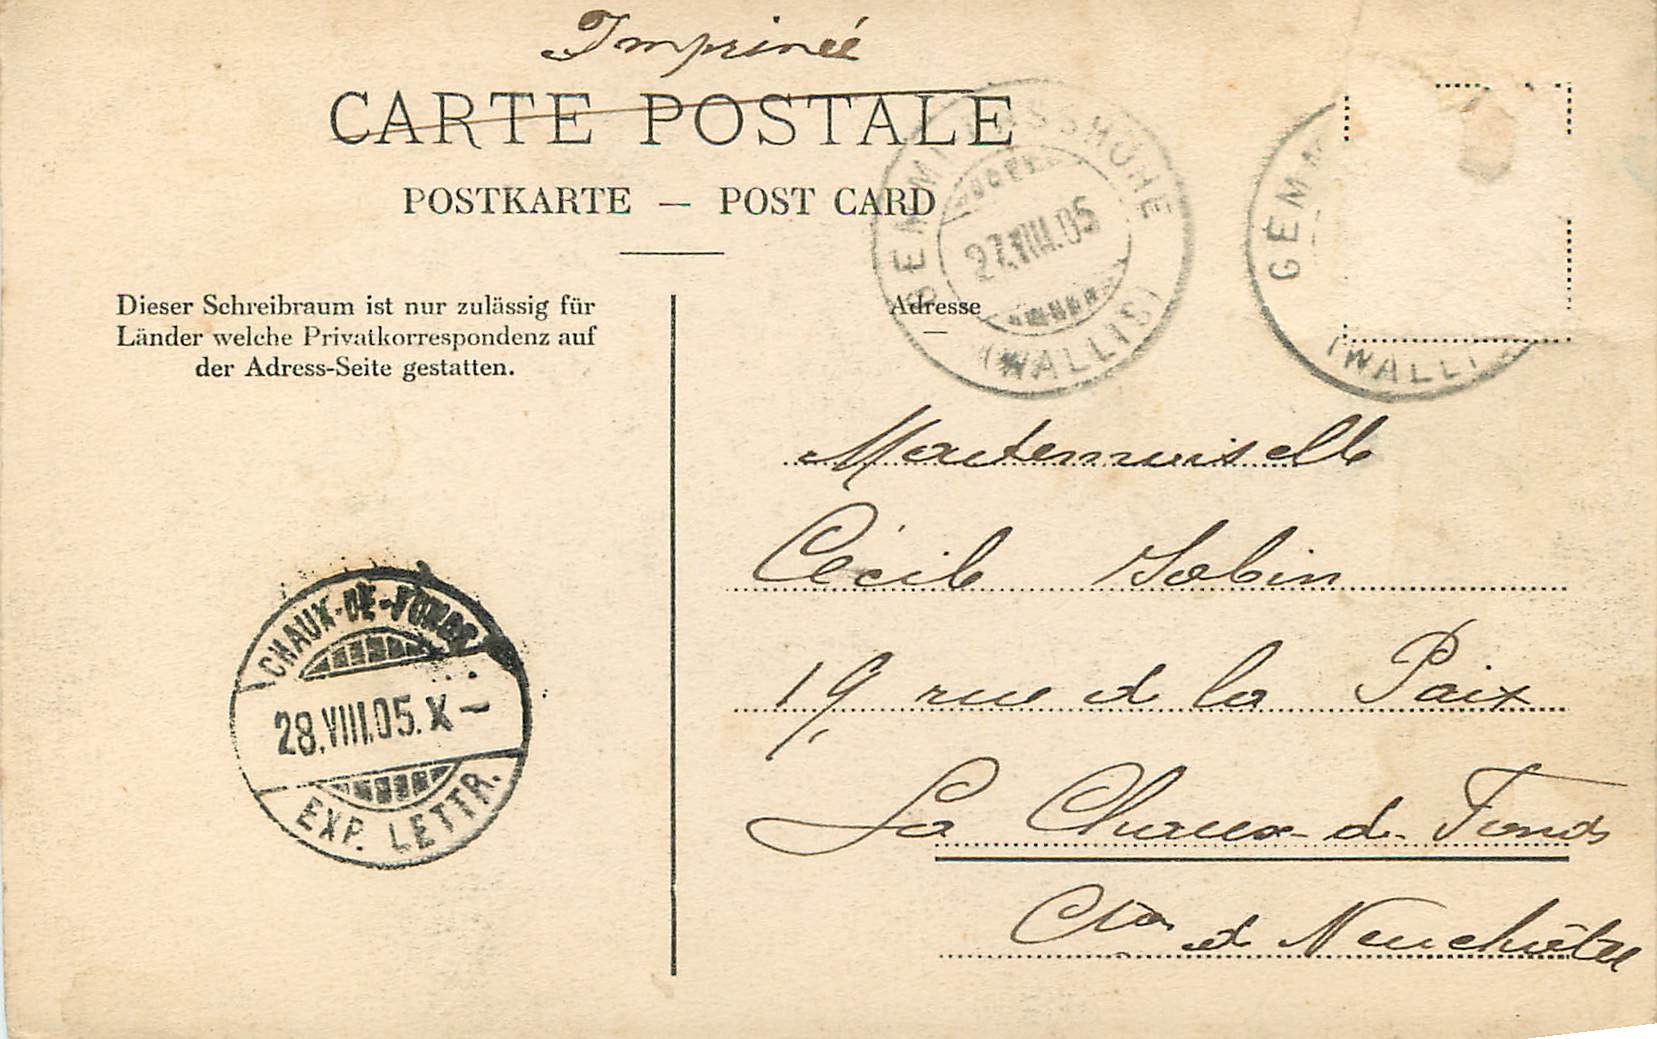 Imprimée
CARTE POSTALE
POSTKARTE — POST CARD
Dieser Schreibraum ist nur zulässig für
Länder welche Privatkorrespondenz auf
der Adress-Seite gestatten.
Adresse
GEMMI PASSHÖHE
27.VIII.05
(WALLIS)
GEMM
(WALLI
Mademoiselle
Cécile Jobin
19, rue de la Paix
La Chaux-de-Fonds
Cton de Neuchâtel
CHAUX-DE-FONDS
28.VIII.05.X–
EXP. LETTR.